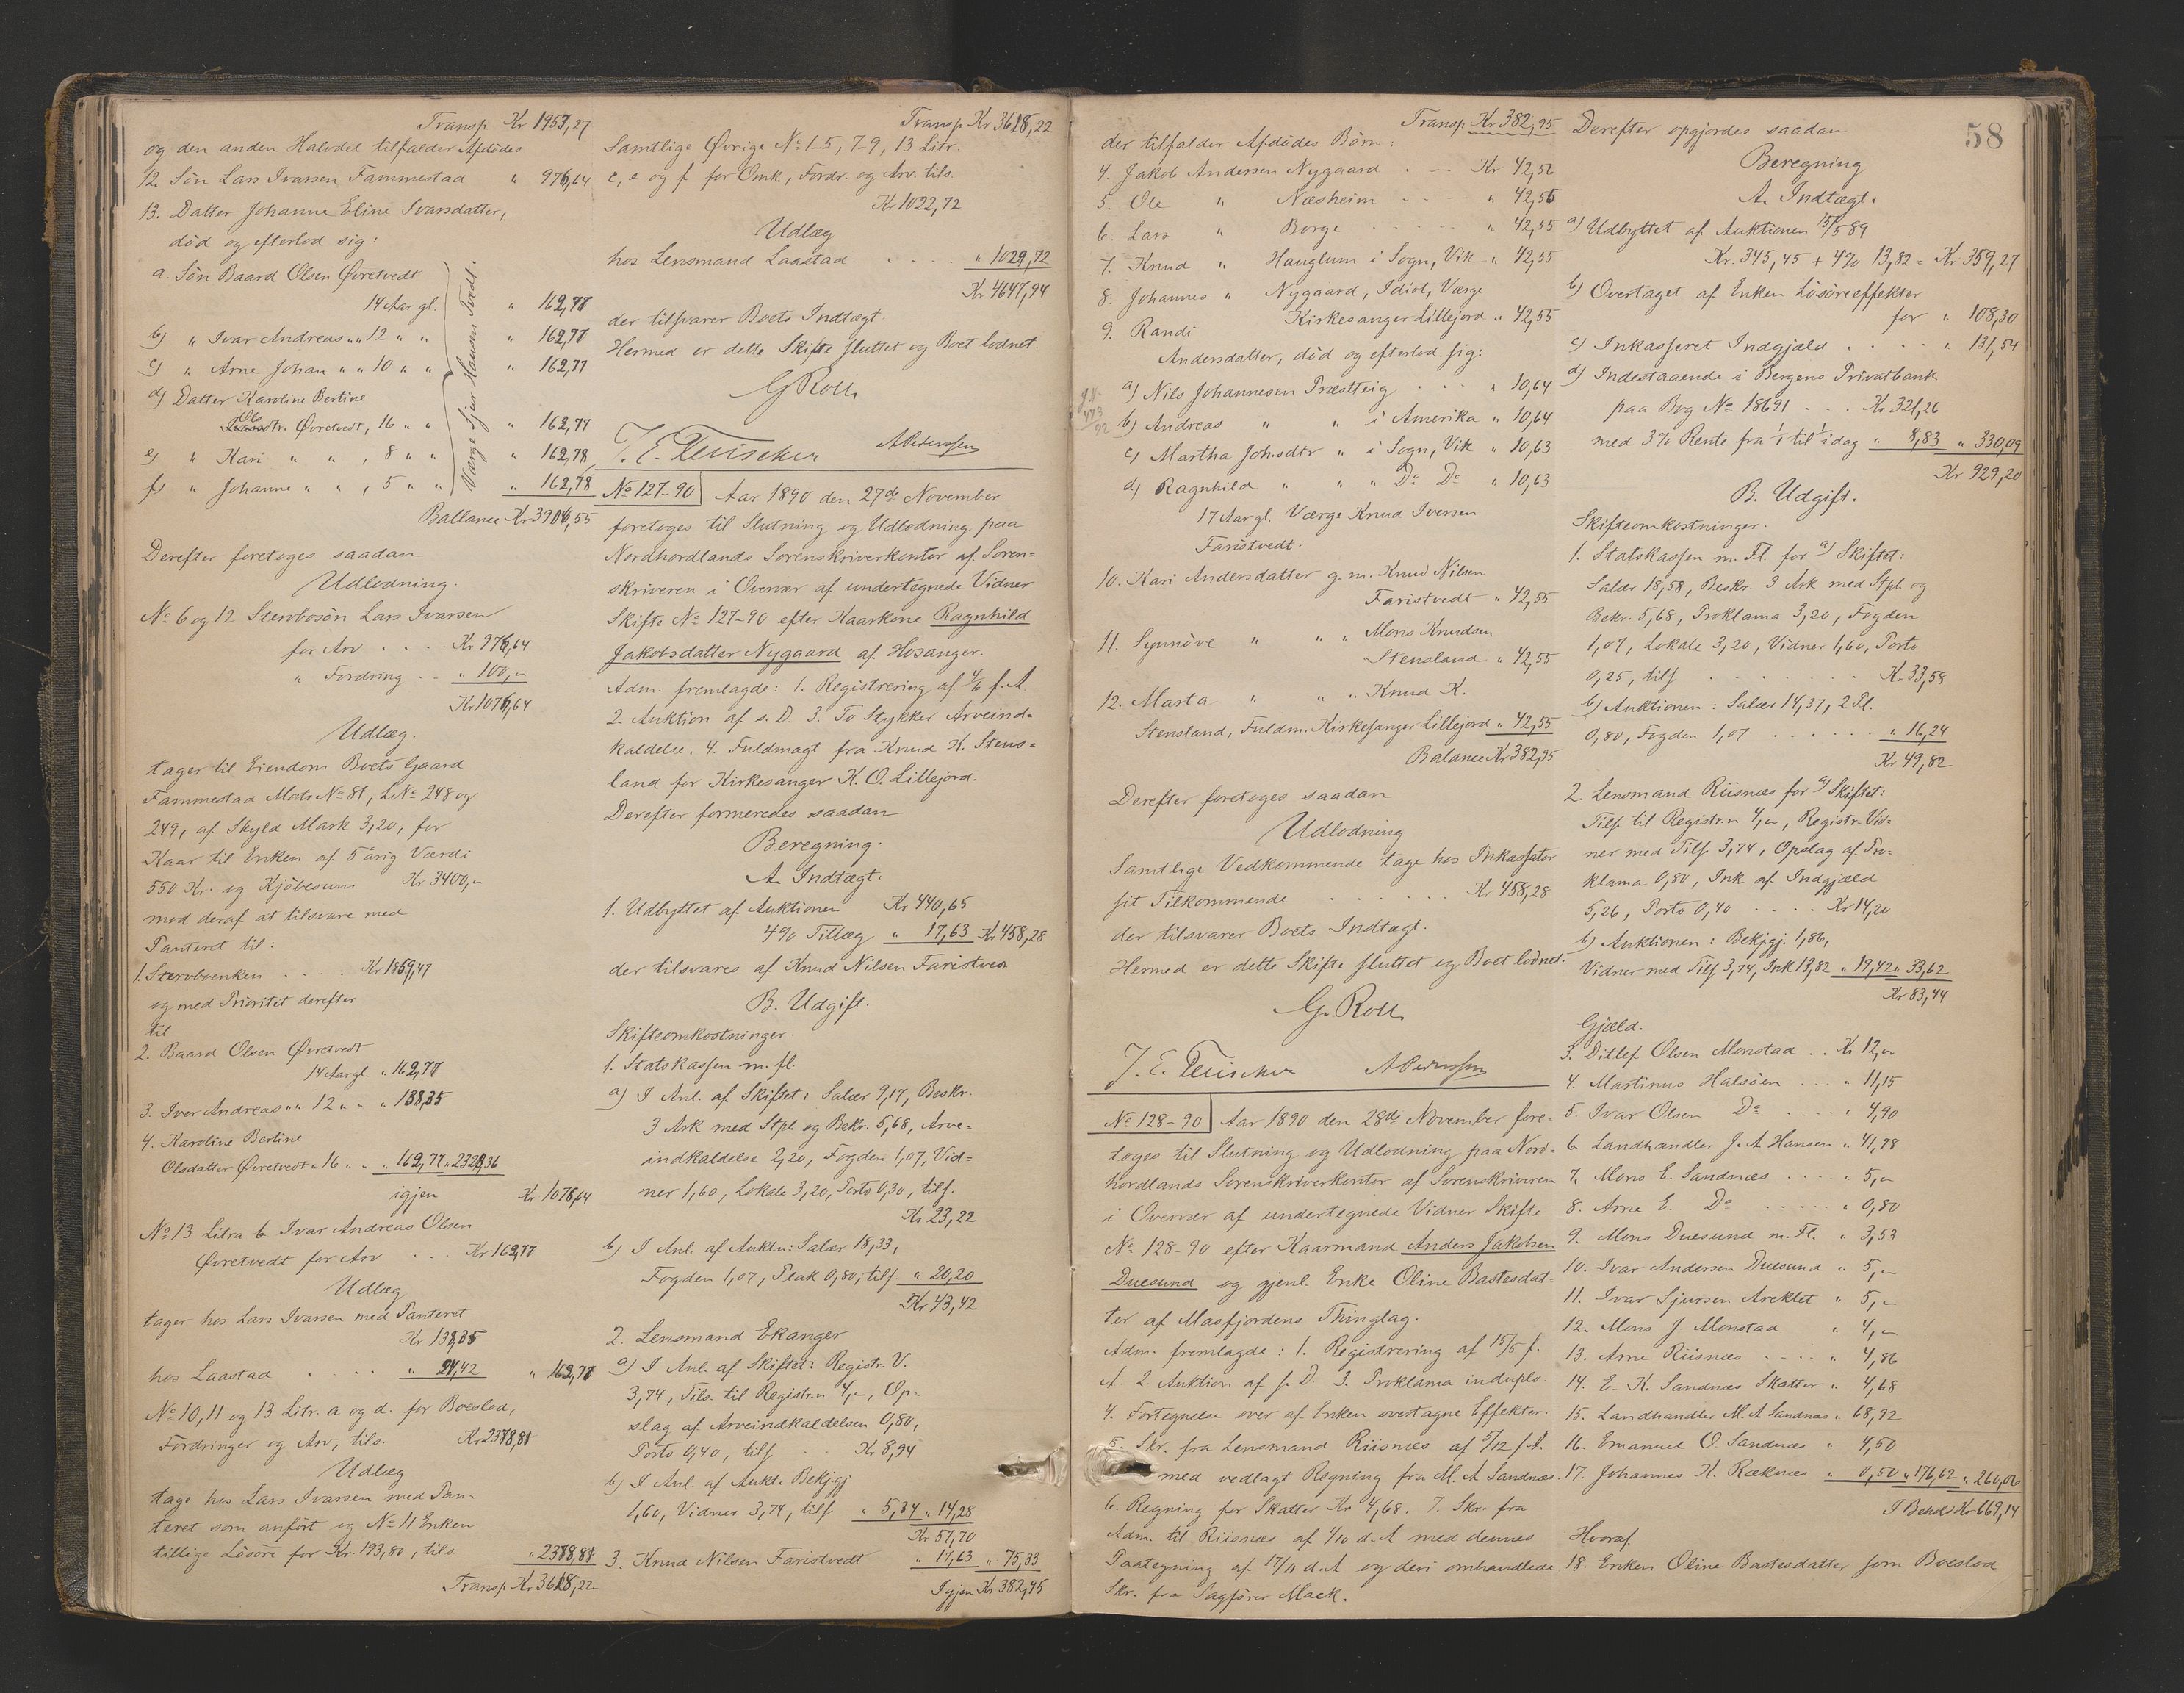 Transp. Kr 1953,27
og den anden Halvdel tilfalder Afdødes
12. Søn Lars Ivarsen Fammestad " 976,64
13. Datter Johanne Eline Ivarsdatter,
død og efterlod sig:
a. Søn Baard Olsen Øvretvedt
14 Aar gl. " 162,77
b) " Ivar Andreas " " 12 " " " 162,77
c) " Arne Johan " " 10 " " " 162,77
d) Datter Karoline Bertine
Olsdtr. Øvretvedt, 16 " " " 162,77
e) " Kari " " , 8 " " " 162,78
f) " Johanne " " , 5 " " " 162,78
Værge Sjur Hansen Tvedt.
Ballance Kr 3906,55
Derefter foretoges saadan
Udlodning.
No 6 og 12 Stervbosøn Lars Ivarsen
for Arv . . . . Kr 976,64
" Fordring . . " 100,"
Kr 1076,64
Udlæg.
tager til Eiendom Boets Gaard
Fammestad Matr No 81, LNo 248 og
249, af Skyld Mark 3,20, for
Kaar til Enken af 5 årig Værdi
550 Kr. og Kjøbesum Kr 3400,"
mod deraf at tilsvare med
Panteret til:
1. Stervboenken . . . . Kr 1869,47
og med Prioritet derefter
til
2. Baard Olsen Øvretvedt
14 Aar gl. " 162,77
3. Iver Andreas " " 12 " " " 138,35
4. Karoline Bertine
Olsdatter Øvretvedt " 16 " " " 162,77 " 2323,36
igjen Kr 1076,64
No 13 Litra b Ivar Andreas Olsen
Øvretvedt for Arv . . . Kr 162,77
Udlæg
tager hos Lars Ivarsen med Panteret
Kr 138,35
hos Laastad . . . . " 24,42 " 162,77
No 10, 11 og 13 Litr. a og d. for Boeslod,
Fordringer og Arv, tils. Kr 2378,81
Udlæg
tage hos Lars Ivarsen med Pan-
teret som anført og No 11 Enken
tillige Løsøre for Kr. 193,80, tils. " 2378,81
Transp. Kr 3618,22
Transp. Kr 3618,22
Samtlige Øvrige No 1-5, 7-9, 13 Litr.
c, e og f for Omk, Fordr. og Arv. tils.
Kr 1022,72
Udlæg
hos Lensmand Laastad . . . . " 1029,72
Kr 4647,94
der tilsvarer Boets Indtægt.
Hermed er dette Skifte sluttet og Boet lodnet.
G Roll
J. E. Teuscher APederssen
No 127-90 Aar 1890 den 27de November
foretoges til Slutning og Udlodning paa
Nordhordlands Sorenskriverkontor af Soren=
skriveren i Overvær af undertegnede Vidner
Skifte No 127-90 efter Kaarkone Ragnhild
Jakobsdatter Nygaard af Hosanger.
Adm. fremlagde: 1. Registrering af 4/6 f. A.
2. Auktion af s. D. 3. To Stykker Arveind=
kaldelse. 4. Fuldmagt fra Knud K. Stens=
land for Kirkesanger K. O. Lillejord.
Derefter formeredes saadan
Beregning.
A. Indtægt.
1. Udbyttet af Auktionen Kr 440,65
4% Tillæg " 17,63 Kr 458,28
der tilsvares af Knud Nilsen Faristvedt
B. Udgift.
Skifteomkostninger.
1. Statskassen m. fl.
a) I Anl. af Skiftet: Salær 9,17, Beskr.
3 Ark med Stpl og Bekr. 5,68, Arve=
indkaldelse 2,20, Fogden 1,07, Vid=
ner 1,60, Lokale 3,20, Porto 0,30, tils.
Kr 23,22
b) I Anl. af Auktn: Salær 18,33,
Fogden 1,07, Plak 0,80, tils. " 20,20
Kr 43,42
2. Lensmand Ekanger
a) I Anl. af Skiftet: Registr. V.
3,74, Tils. til Registr.n 4,", Op=
slag af Arveindkaldelsen 0,80,
Porto 0,40, tils . . Kr 8,94
b) I Anl. af Aukt. Bekj.gj
1,60, Vidner 3,74, tils " 5,34 " 14,28
Kr 57,70
3. Knud Nilsen Faristvedt " 17,63 " 75,33
Igjen Kr 382,95
58
Transp. Kr 382,95
der tilfalder Afdødes Børn:
4. Jakob Andersen Nygaard . — Kr 42,56
5. Ole " Næsheim . . . . " 42,56
6. Lars " Borge . . . . . " 42,55
7. Knud " Hauglum i Sogn, Vik " 42,55
8. Johannes " Nygaard, Idiot, Værge
Kirkesanger Lillejord " 42,55
9. Randi
Andersdatter, død og efterlod sig:
a) Nils Johannesen Præstteig . . . " 10,64
b) Andreas " " i Amerika " 10,64
c) Martha Johsdtr " i Sogn, Vik " 10,63
d) Ragnhild " " " Do Do " 10,63
17 Aar gl. Værge Knud Iversen
Faristvedt.
10. Kari Andersdatter g. m. Knud Nilsen
Faristvedt " 42,55
11. Synnøve " " " Mons Knudsen
Stensland " 42,55
12. Marta " " " Knud K.
Stensland, Fuldm. Kirkesanger Lillejord " 42,55
Balance Kr 382,95
Derefter foretoges saadan
Udlodning
Samtlige Vedkommende tage hos Inkassator
sit Tilkommende . . . . . . Kr 458,28
der tilsvarer Boets Indtægt.
Hermed er dette Skifte sluttet og Boet lodnet.
G. Roll
J. E. Teuscher APederssen
No 128-90 Aar 1890 den 28de November fore=
toges til Slutning og Udlodning paa Nord-
hordlands Sorenskriverkontor af Sorenskriveren
i Overvær af undertegnede Vidner Skifte
No 128-90 efter Kaarmand Anders Jakobsen
Duesund og gjenl. Enke Oline Bastesdat=
ter af Masfjordens Thinglag.
Adm. fremlagde: 1. Registrering af 15/5 f.
A. 2. Auktion af s. D. 3. Proklama in duplo.
4. Fortegnelse over af Enken overtagne Effekter.
5. Skr. fra Lensmand Riisnæs af 5/12 f. A.
med vedlagt Regning fra M. A Sandnæs.
6. Regning for Skatter Kr 4,68. 7. Skr. fra
Adm. til Riisnæs af 1/10 d. A med dennes
Paategning af 17/11 d. A og deri omhandlede
Skr. fra Sagfører Mack.
Derefter opgjordes saadan
Beregning
A. Indtægt.
a) Udbyttet af Auktionen 15/5 89
Kr. 345,45 + 4% 13,82 = Kr 359,27
b) Overtaget af Enken Løsøreeffekter
for " 108,30
c) Inkasseret Indgjæld . . . . " 131,54
d) Indestaaende i Bergens Privatbank
paa Bog No 18691 . . . Kr 321,26
med 3% Rente fra 1/1 til idag " 8,83 " 330,09
Kr 929,20
B. Udgift.
Skifteomkostninger.
1. Statskassen m. Fl. for a) Skiftet:
Salær 18,58, Beskr. 3 Ark med Stpl. og
Bekr. 5,68, Proklama 3,20, Fogden
1,07, Lokale 3,20, Vidner 1,60, Porto
0,25, tils . . . . . . Kr. 33,58
b) Auktionen: Salær 14,37, 2 Pl.
0,80, Fogden 1,07 . . . . . . " 16,24
Kr 49,82
2. Lensmand Riisnæs for a) Skiftet:
Tils. til Registr.n 4,", Registr. Vid=
ner med Tils. 3,74, Opslag af Pro-
klama 0,80, Ink af Indgjæld
5,26, Porto 0,40 . . . . Kr 14,20
b) Auktionen: Bekj.gj. 1,86,
Vidner med Tils. 3,74, Ink 13,82 " 19,42 " 33,62
Kr 83,44
Gjæld.
3. Ditlef Olsen Monstad . . Kr 12,"
4. Martinus Halsøen . . . " 11,15
5. Ivar Olsen Do . . . . " 4,90
6. Landhandler J. A Hansen " 41,78
7. Mons E. Sandnæs . . . . " 5,"
8. Arne E. Do . . . . . " 0,80
9. Mons Duesund m. Fl. " 3,53
10. Ivar Andersen Duesund " 5,"
11. Ivar Sjursen Areklet " 5,"
12. Mons J. Monstad " 4,"
13. Arne Riisnæs . . . . " 4,86
14. E. K. Sandnæs Skatter " 4,68
15. Landhandler M. A Sandnæs " 68,92
16. Emanuel O. Sandnæs " 4,50
17. Johannes H. Ræknæs " 0,50 " 176,62 " 260,06
I Behold Kr 669,14
Hvoraf
18. Enken Oline Bastesdatter som Boeslod